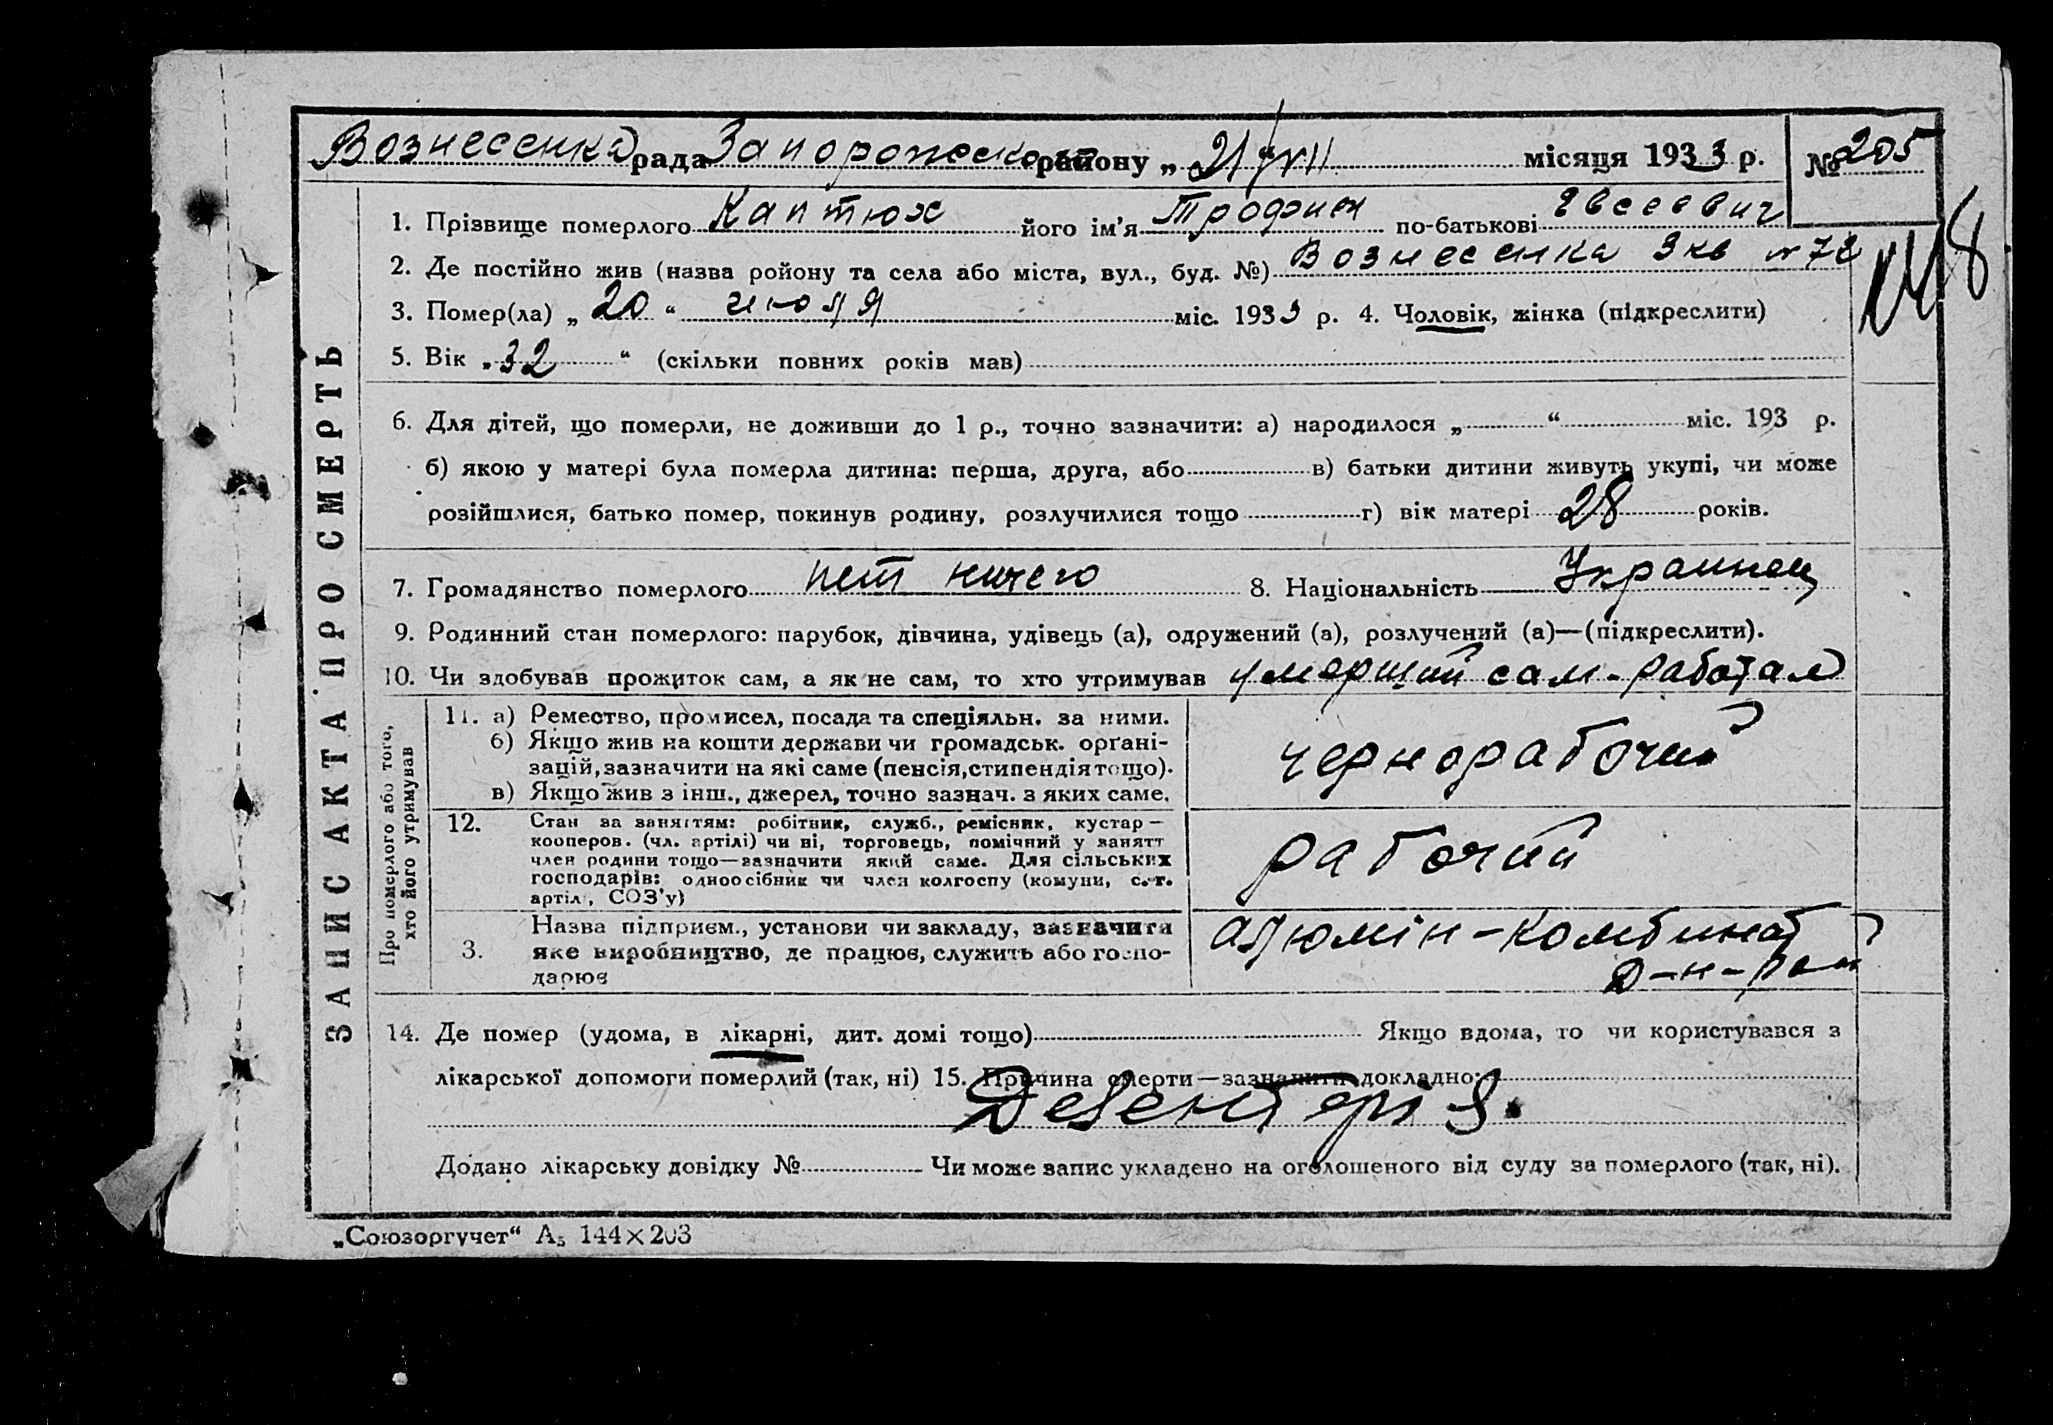 Вознесенка рада Запорожского району „ 21 “ VII місяця 1933 р. № 205
1. Прізвище померлого Каптюх його ім'я Трофим по-батькові Евсеевич
2. Де постійно жив (назва ройону та села або міста, вул., буд. №) Вознесенка 3 кв № 72
3. Помер(ла) „ 20 “ июля міс. 1933 р. 4. Чоловік, жінка (підкреслити)
5. Вік „ 32 “ (скільки повних років мав)
6. Для дітей, що померли, не доживши до 1 р., точно зазначити: а) народилося „ “ міс. 193 р.
б) якою у матері була померла дитина: перша, друга, або в) батьки дитини живуть укупі, чи може
розійшлися, батько помер, покинув родину, розлучилися тощо г) вік матері 28 років.
7. Громадянство померлого нет ничего 8. Національність Украинец
9. Родинний стан померлого: парубок, дівчина, удівець (а), одружений (а), розлучений (а)—(підкреслити).
10. Чи здобував прожиток сам, а як не сам, то хто утримував умерший сам - работал
ЗАПИС АКТА ПРО СМЕРТЬ
Про померлого або того,
хто його утримував
11. а) Ремество, промисел, посада та спеціяльн. за ними.
б) Якщо жив на кошти держави чи громадськ. органі-
зацій, зазначити на які саме (пенсія, стипендія тощо).
в) Якщо жив з інш., джерел, точно зазнач. з яких саме.
чернорабочий
12. Стан за заняттям: робітник, служб., ремісник, кустар—
кооперов. (чл. артілі) чи ні, торговець, помічний у занятт
член родини тощо—зазначити який саме. Для сільських
господарів: одноосібник чи член колгоспу (комуни, с.-г.
артілі, СОЗ'у)
рабочий
3. Назва підприєм., установи чи закладу, зазначити
яке виробництво, де працює, служить або госпо-
дарює
алюмін - комбинат
14. Де помер (удома, в лікарні, дит. домі тощо) Якщо вдома, то чи користувався з
лікарської допомоги померлий (так, ні) 15. Причина смерти—зазначити докладно:
Дезентерія.
Додано лікарську довідку № Чи може запис укладено на оголошеного від суду за померлого (так, ні).
„Союзоргучет“ А₅ 144×203